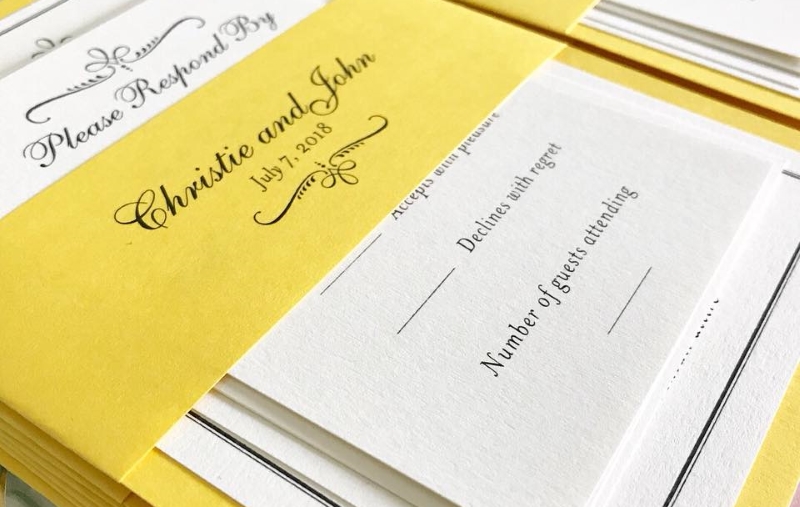 Please Respond By
Christie and John
July 7, 2018
Accepts with pleasure
Declines with regret
Number of guests attending